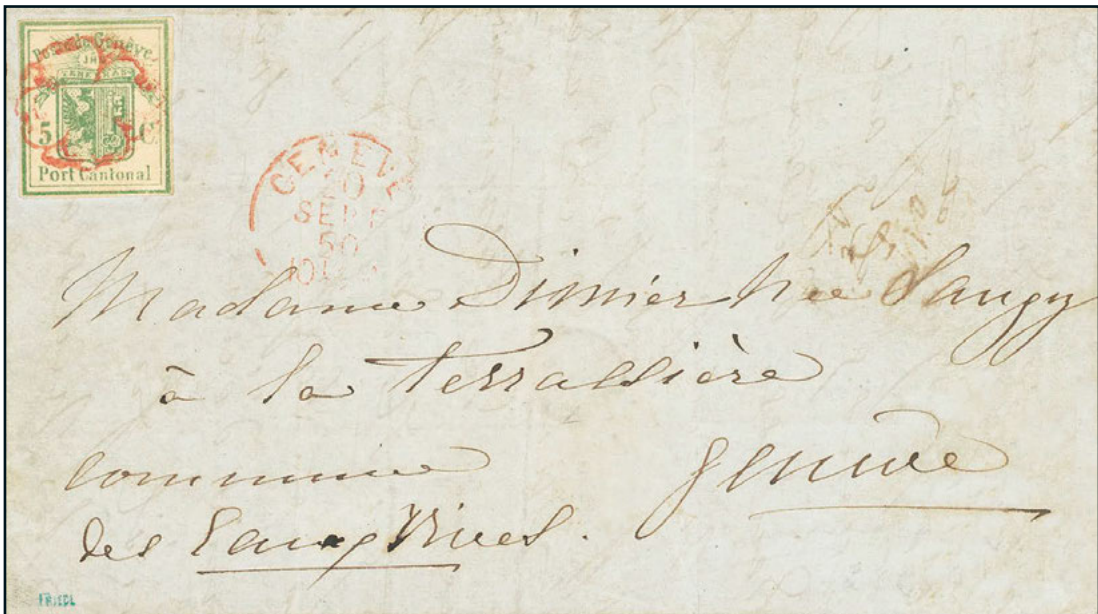 Poste de Genève
JHS
TENEBRAS
5 C.
Port Cantonal
GENEVE
20
SEPT
50
10
Madame Dimier Née Saugy
à la Terrassière
commune Genève
des Eaux Vives.
FRIEDL